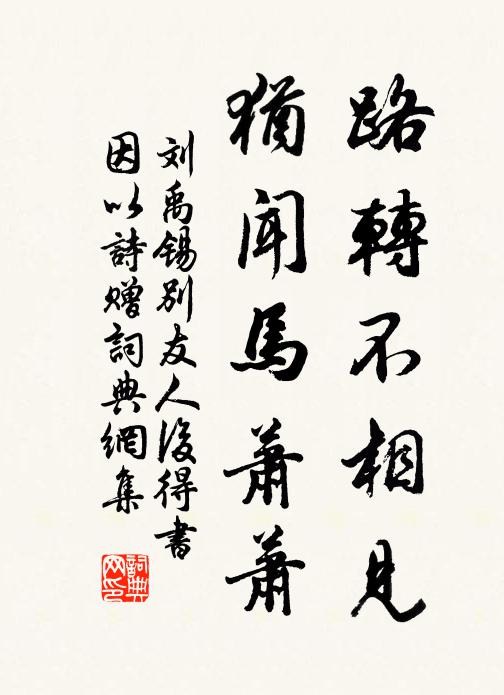 路轉不相見
猶聞馬蕭蕭
刘禹锡別友人後得書
因以詩贈詞典網集
詞典
网印